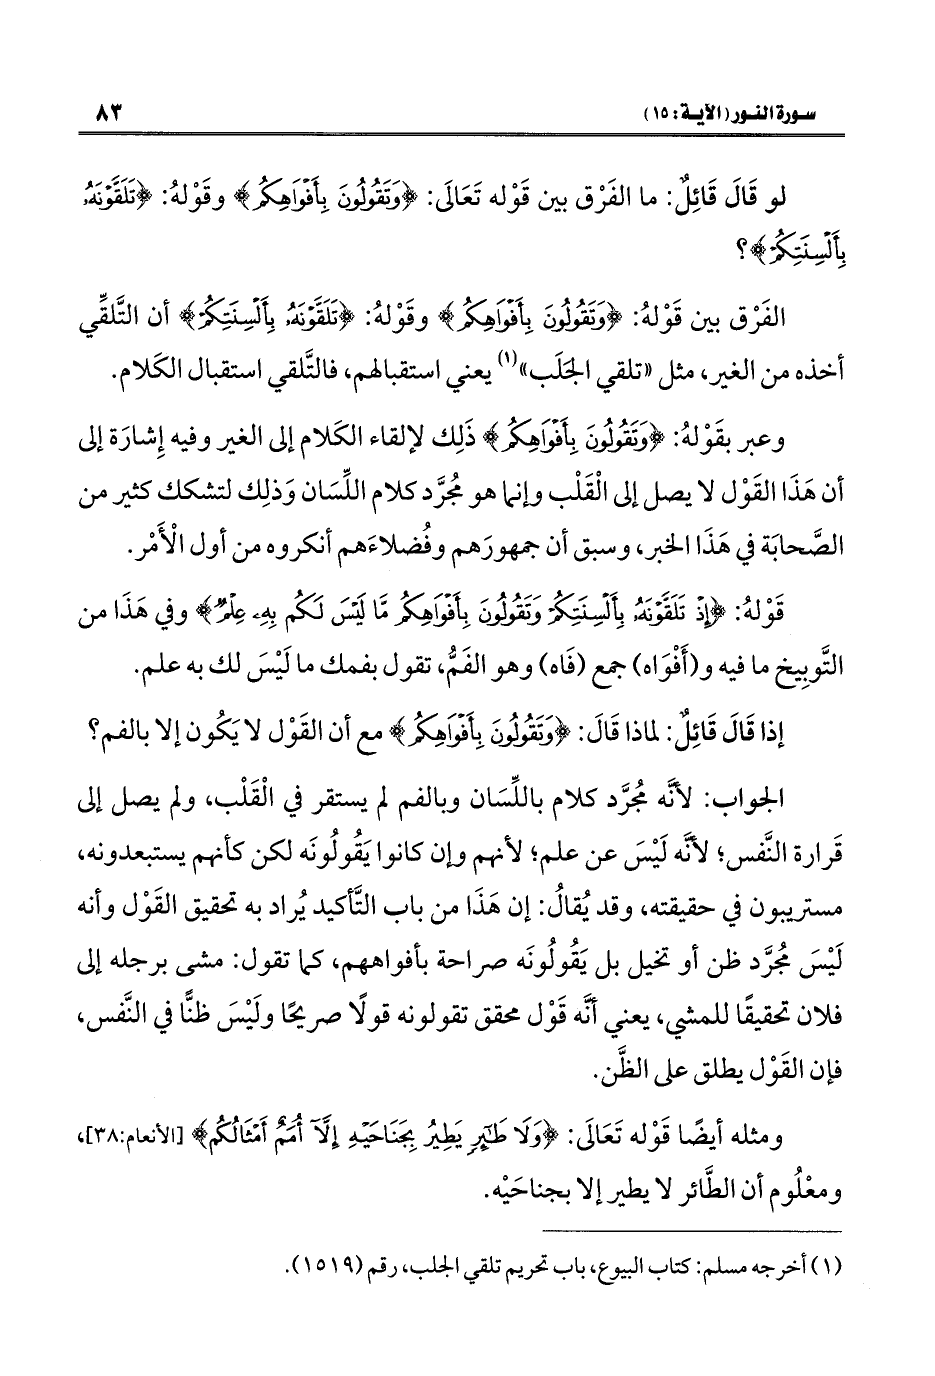 سورة النور (الآية: ١٥) ٨٣
لو قَالَ قَائِلٌ: ما الفَرْق بين قَوْله تَعَالَى: ﴿وَتَقُولُونَ بِأَفْوَاهِكُم﴾ وقَوْلهُ: ﴿تَلَقَّوْنَهُۥ
بِأَلْسِنَتِكُمْ﴾؟
الفَرْق بين قَوْلهُ: ﴿وَتَقُولُونَ بِأَفْوَاهِكُم﴾ وقَوْلهُ: ﴿تَلَقَّوْنَهُۥ بِأَلْسِنَتِكُمْ﴾ أن التَّلقِّي
أخذه من الغير، مثل «تلقي الجَلَب»(١) يعني استقبالهم، فالتَّلقي استقبال الكَلام.
وعبر بقَوْلهُ: ﴿وَتَقُولُونَ بِأَفْوَاهِكُم﴾ ذَلِك لإلقاء الكَلام إلى الغير وفيه إِشارَة إلى
أن هَذَا القَوْل لا يصل إلى الْقَلْب وإنما هو مُجرَّد كلام اللِّسَان وَذَلِك لتشكك كثير من
الصَّحابَة في هَذَا الخبر، وسبق أن جمهورَهم وفُضلاءَهم أنكروه من أول الْأَمْر.
قَوْلهُ: ﴿إِذْ تَلَقَّوْنَهُۥ بِأَلْسِنَتِكُمْ وَتَقُولُونَ بِأَفْوَاهِكُم مَّا لَيْسَ لَكُم بِهِۦ عِلْمٌ﴾ وفي هَذَا من
التَّوبِيخ ما فيه و(أَفْوَاه) جمع (فَاه) وهو الفَمُّ، تقول بفمك ما لَيْسَ لك به علم.
إذا قَالَ قَائِلٌ: لماذا قَالَ: ﴿وَتَقُولُونَ بِأَفْوَاهِكُم﴾ مع أن القَوْل لا يَكُون إلا بالفم؟
الجواب: لأنَّه مُجرَّد كلام باللِّسَان وبالفم لم يستقر في الْقَلْب، ولم يصل إلى
قَرارة النَّفس؛ لأنَّه لَيْسَ عن علم؛ لأنهم وإن كانوا يَقُولُونَه لكن كأنهم يستبعدونه،
مستريبون في حقيقته، وقد يُقالُ: إن هَذَا من باب التَّأكيد يُراد به تحقيق القَوْل وأنه
لَيْسَ مُجرَّد ظن أو تخيل بل يَقُولُونَه صراحة بأفواههم، كما تقول: مشى برجله إلى
فلان تحقيقًا للمشي، يعني أنَّه قَوْل محقق تقولونه قولًا صريحًا ولَيْسَ ظنًّا في النَّفس،
فإن القَوْل يطلق على الظَّن.
ومثله أيضًا قَوْله تَعَالَى: ﴿وَلَا طَٰٓئِرٍ يَطِيرُ بِجَنَاحَيْهِ إِلَّآ أُمَمٌ أَمْثَالُكُم﴾ [الأنعام:٣٨]،
ومعْلُوم أن الطَّائر لا يطير إلا بجناحَيْه.
(١) أخرجه مسلم: كتاب البيوع، باب تحريم تلقي الجلب، رقم (١٥١٩).